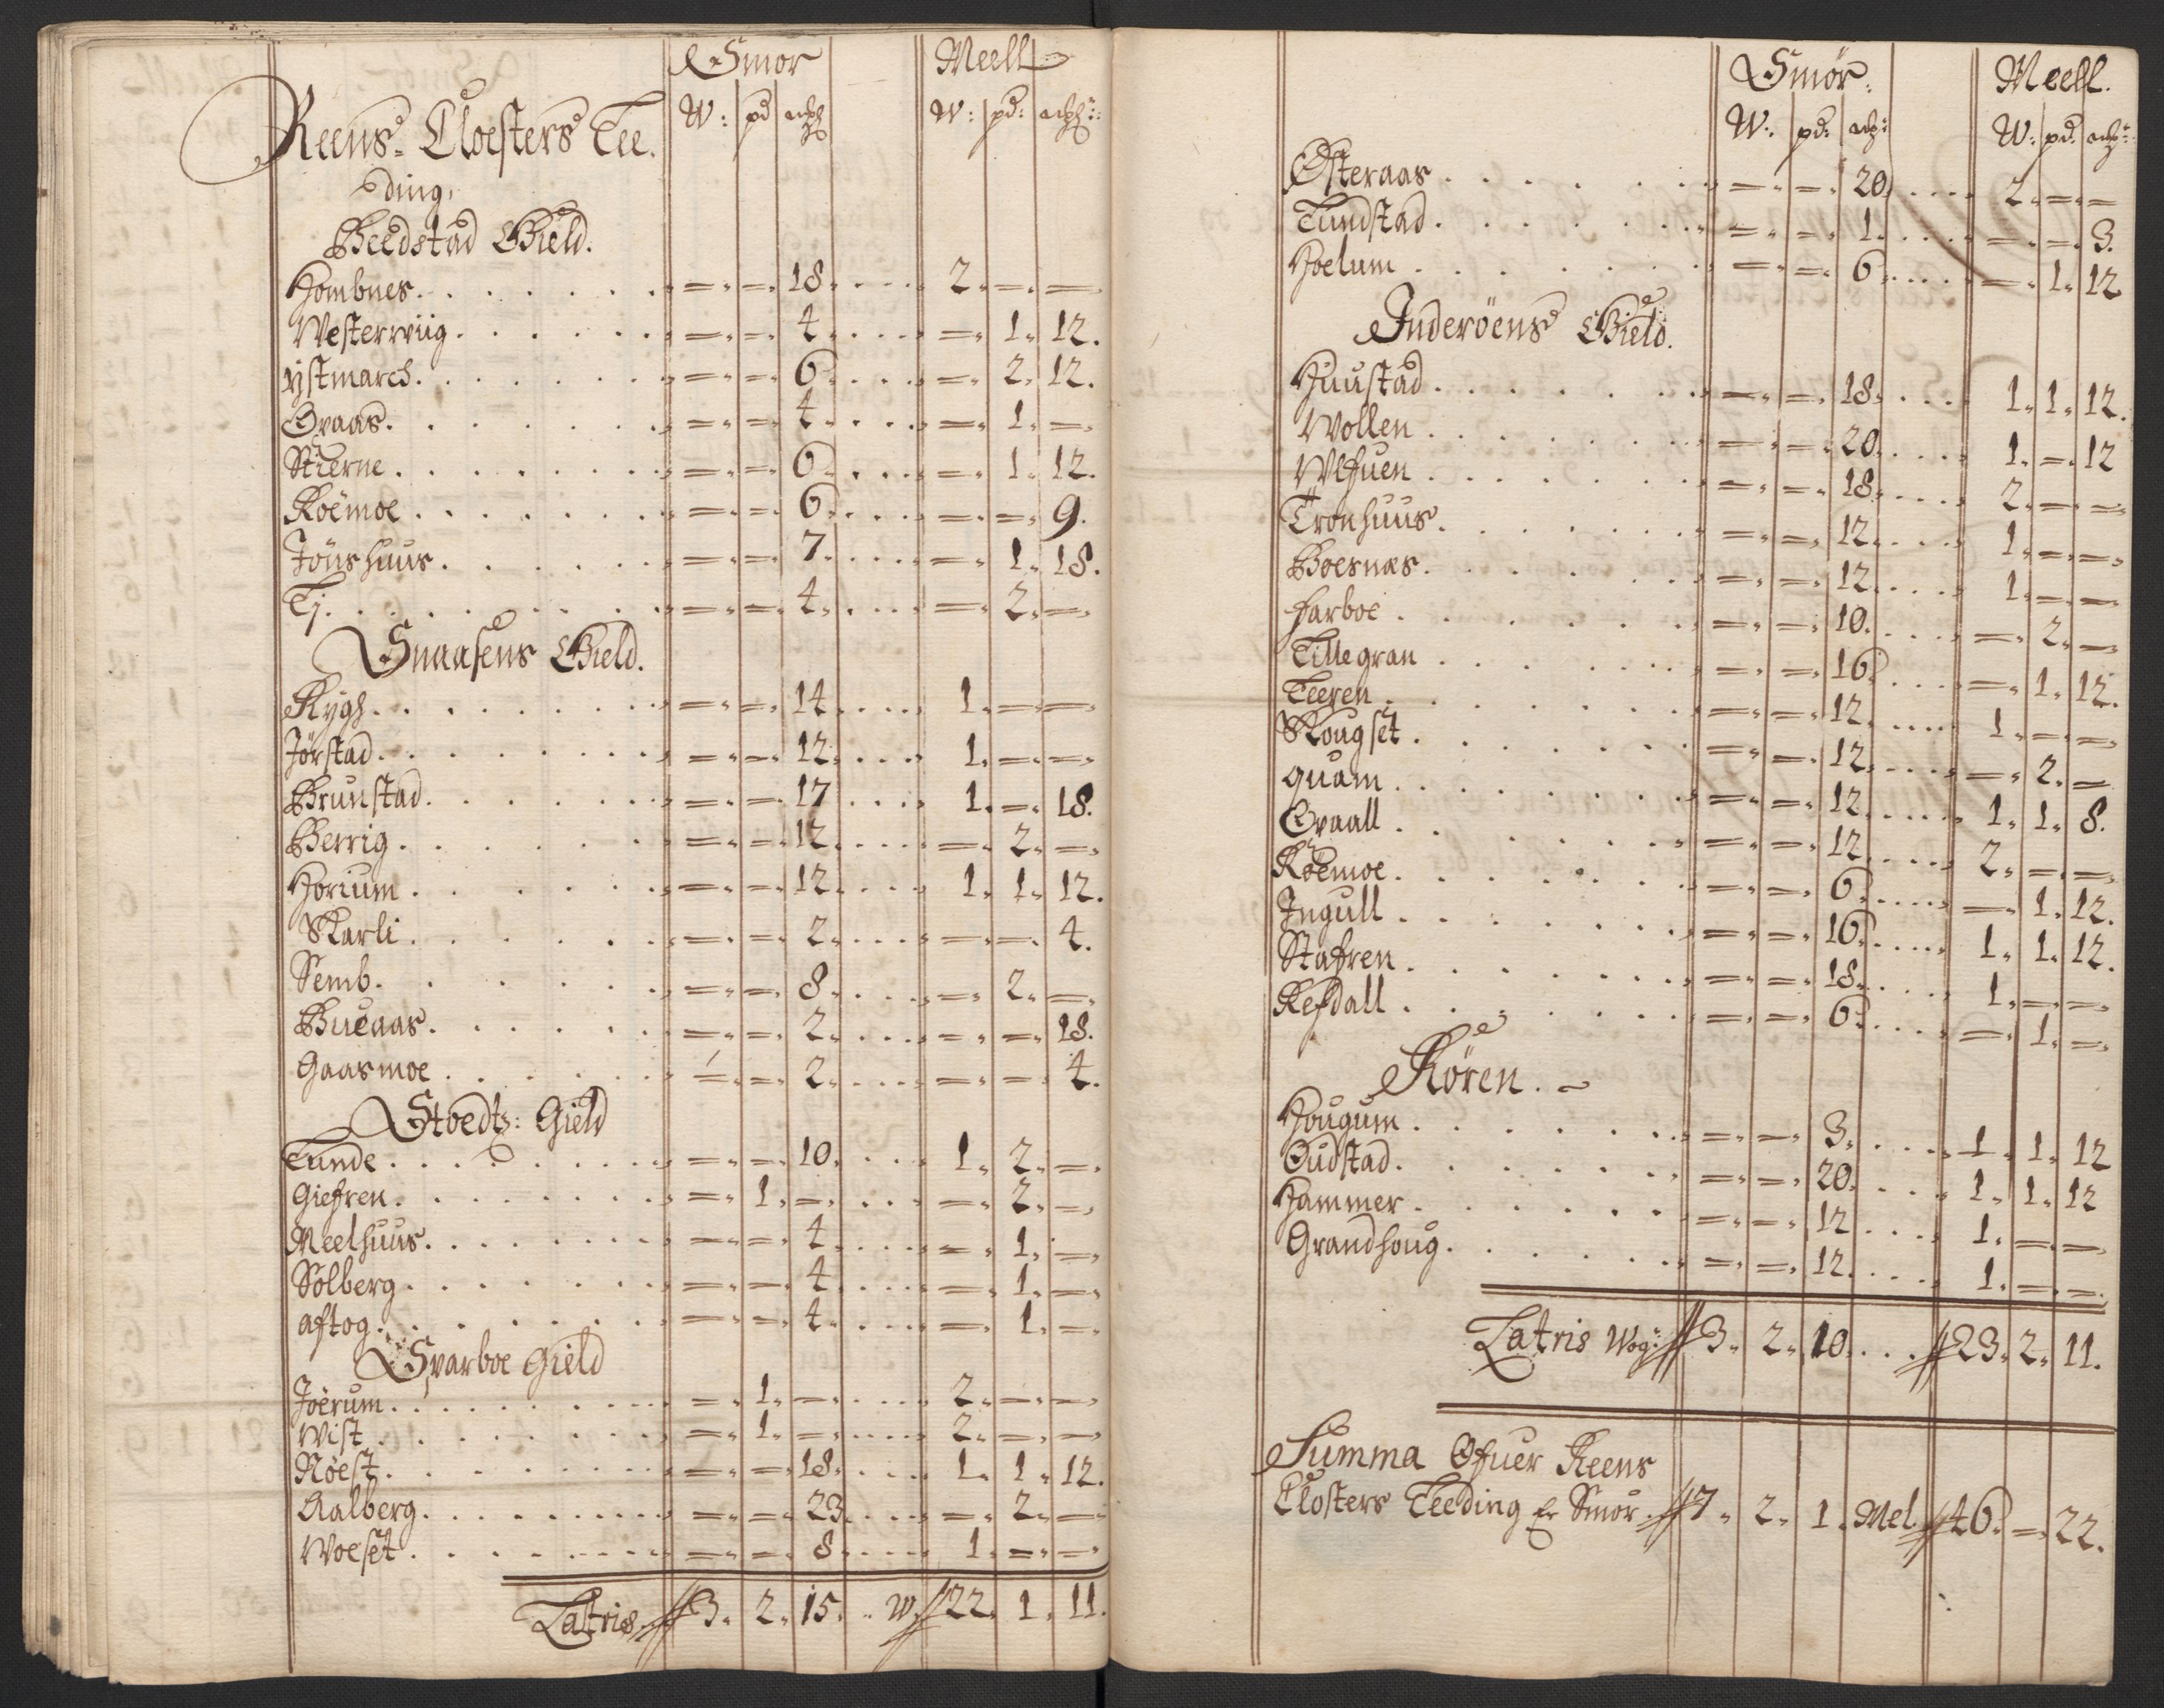 Smör Meell
Reens Closters Tee W: pd W: pd:
ding,
Beedstad Gield.
Hombnes. =,=, 18. 2. =, =
Westerwiig. =,=, 4. =, 1. 12.
ystmarch. =,=, 6. =, 2. 12.
Øvaas. =,=, 4. =, 1. =,
Stierne. =,=, 6. =, 1. 12.
Roëmoe. =,=, 6. =, =, 9.
Jönshuus. =,=, 7. =, 1. 18.
Tj. =,=, 4. =, 2. =,
Snaasens Gield.
Rygh. =,=, 14. 1. =, =,
Jörstad. =,=, 12. 1. =, =,
Brunstad. =,=, 17. 1. =, 18.
Berrig. =,=, 12. =, 2. =,
Horium. =,=, 12. 1. 1. 12.
Skarli. =,=, 2. =, =, 4.
Semb. =,=, 8. =, 2. =,
Bueaas. =,=, 2. =, =, 18.
Gaasmoe. =,=, 2. =, =, 4.
Stoedtz: Gield
Tunde. =,=, 10. 1. 2. =,
Giefren. =, 1. =, =, 2. =,
Meelhuus. =,=, 4. =, 1. =,
Solberg. =,=, 4. =, 1. =,
aftog. =,=, 4. =, 1. =,
Sparboe Gield
Joërum. =, 1. =, 2. =, =,
Wist. =, 1. =, 2. =, =,
Röest. =,=, 18. 1. 1. 12.
Aalberg. =,=, 23. =, 2. =,
Woeset. =,=, 8. 1. =, =,
Latris 3. 2. 15. W. 22. 1. 11.
Smör: Meell.
W: pd: W: pd:
Østeraas. =,=, 20. 2. =, =
Tundstad. =,=, 1. =, =, 3.
Hoelum. =,=, 6. =, 1. 12
Inderöens Gield.
Huustad. =,=, 18. 1. 1. 12.
Wollen. =,=, 20. 1. =, 12
Wlfuen. =,=, 18. 2. =, =,
Tronhuus. =,=, 12. 1. =, =,
Boesnæs. =,=, 12. 1. =, =
farboe. =,=, 10. =, 2. =,
Tillegran. =,=, 16. =, 1. 12.
Teeren. =,=, 12. 1. =, =,
Skougset. =,=, 12. =, 2. =
quam. =,=, 12. 1. 1. 8.
Øvaall. =,=, 12. 2. =, =,
Roëmoe. =,=, 6. =, 1. 12.
Ingull. =,=, 16. 1. 1. 12.
Stafren. =,=, 18. 1. =, =,
Refdall. =,=, 6. =, 1. =,
Rören.
Hougum. =,=, 3. 1. 1. 12
Oudstad. =,=, 20. 1. 1. 12
Hammer. =,=, 12. 1. =, =,
Grandhoug. =,=, 12. 1. =, =.
Latris Wog: 3. 2. 10. 23. 2. 11.
Summa Ofuer Reens
Closters Teeding Er Smör. 7. 2. 1. Mel 46. =, 22.